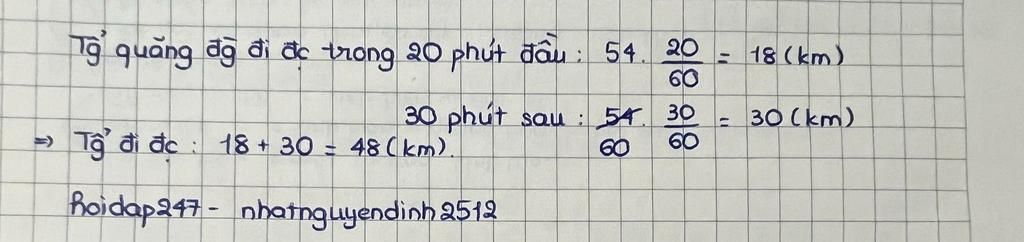 Tg̉ quãng đg̀ đi đc trong 20 phút đầu : 54 . 20/60 = 18 (km)
30 phút sau : 54. 60 30/60 = 30 (km)
=> Tg̉ đi đc : 18 + 30 = 48 (km).
hoidap247 - nhatnguyendinh2512